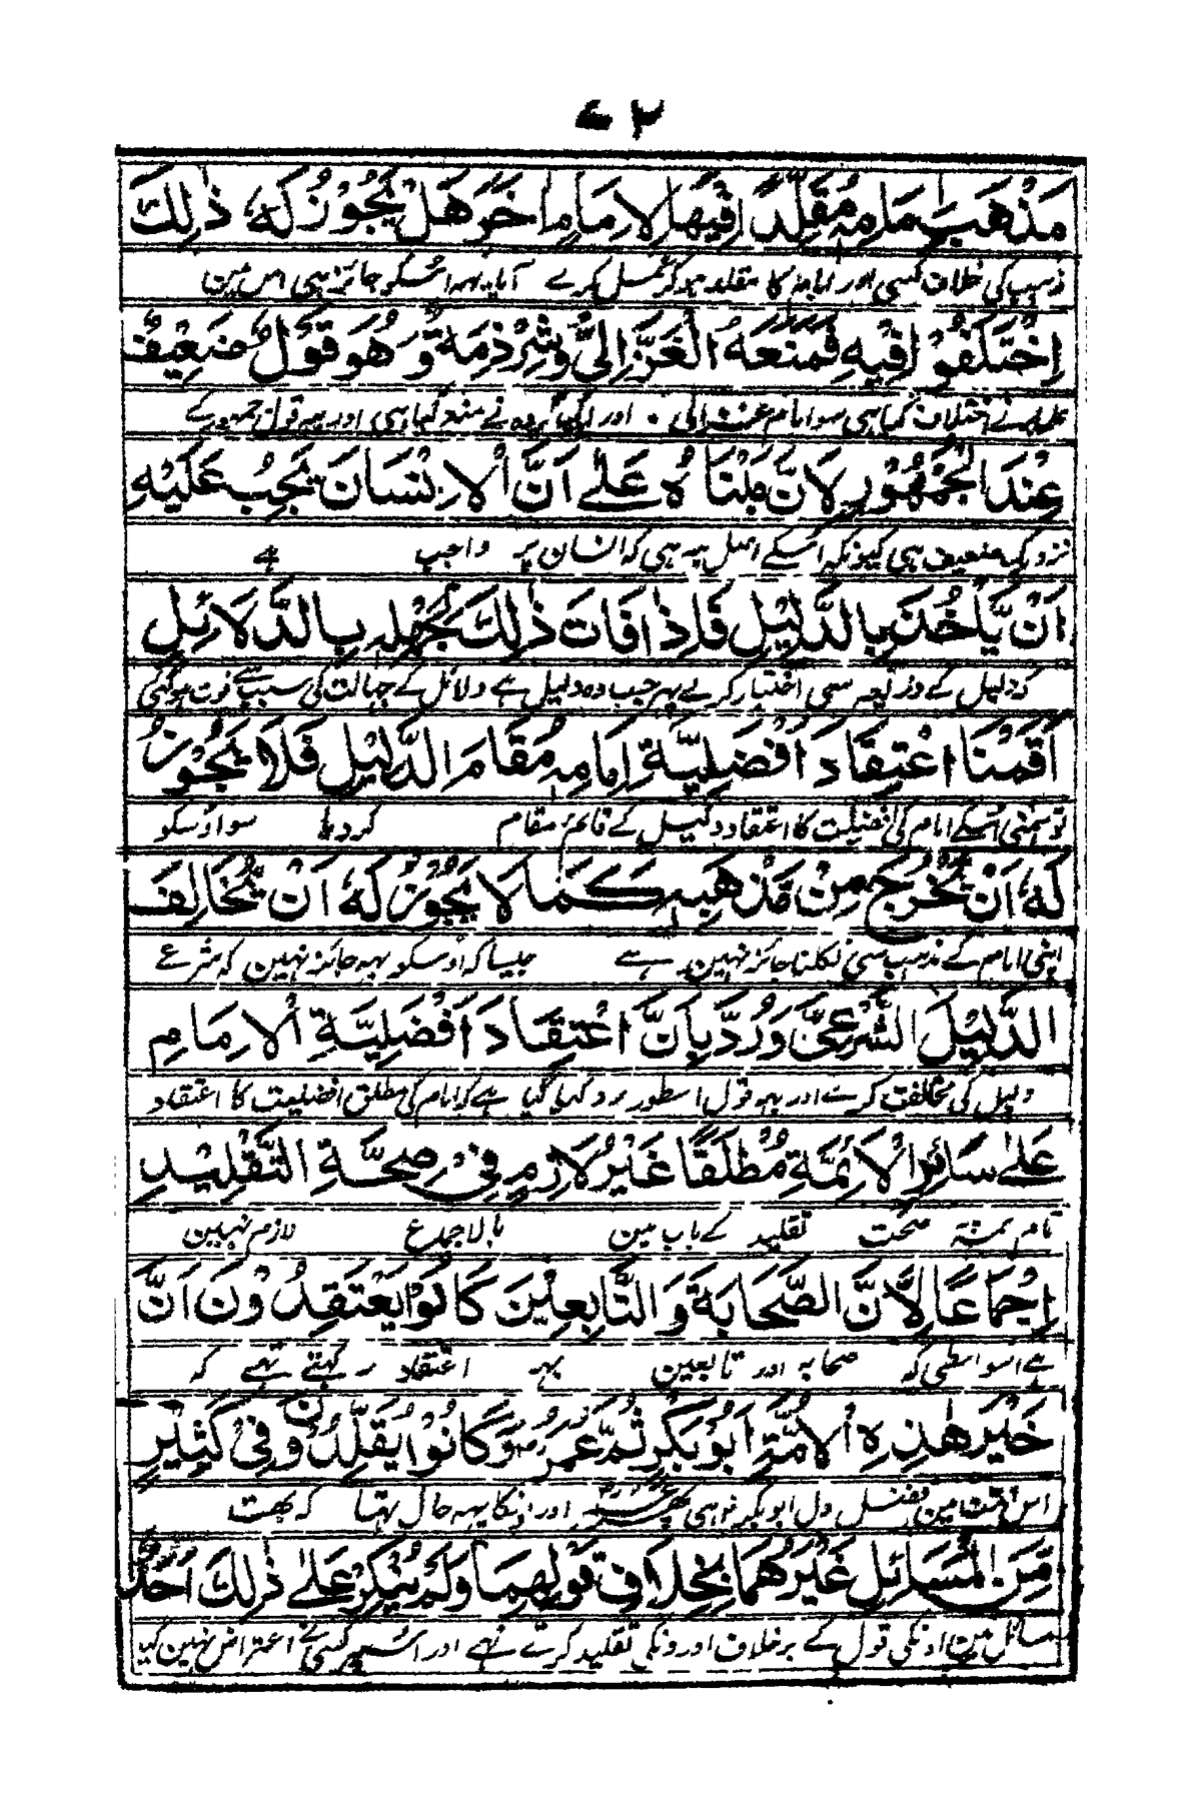 ٧٢
مَذْهَبَ اِمَامِهٖ مُقَلِّدًا فِيْهَا لِاِمَامٍ اٰخَرَ هَلْ يَجُوْزُ لَهٗ ذٰلِكَ
مذہب کی خلاف کسی اور امام کا مقلد ہو کر عمل کرے آیا یہہ اُسکو جائز ہی اس مین
اِخْتَلَفُوْا فِيْهِ فَمَنَعَهُ الْغَزَّالِىُّ وَشِرْذِمَةٌ وَّهُوَ قَوْلٌ ضَعِيْفٌ
علما نے اختلاف کیا ہی سو امام غزالی اور ایک گروہ نے منع کیا ہی اور یہ قول جمہور کے
عِنْدَ الْجُمْهُوْرِ لِاَنَّ مَبْنَاهُ عَلٰى اَنَّ الْاِنْسَانَ يَجِبُ عَلَيْهِ
نزدیک ضعیف ہی کیونکہ اسکے اصل یہ ہی کہ انسان پر واجب ہے
اَنْ يَّاْخُذَ بِالدَّلِيْلِ فَاِذَا فَاتَ ذٰلِكَ لِجَهْلِهٖ بِالدَّلَائِلِ
کہ دلیل کے ذریعہ سی اختیار کرے پہر جب وہ دلیل ہے دلائل کے جہالت کی سبب سے فوت ہو گئی
اَقَمْنَا اعْتِقَادَ اَفْضَلِيَّةِ اِمَامِهٖ مُقَامَ الدَّلِيْلِ فَلَا يَجُوْزُ
تو ہمنی اُسکے امام کی فضیلت کا اعتقاد دلیل کے قائم مقام کر دیا سو اوسکو
لَهٗ اَنْ يَّخْرُجَ مِنْ مَّذْهَبِهٖ كَمَا لَا يَجُوْزُ لَهٗ اَنْ يُّخَالِفَ
اپنی امام کے مذہب سی نکلنا جائز نہین ہے جیسا کہ اوسکو یہہ جائز نہین کہ شرعی
الدَّلِيْلَ الشَّرْعِىَّ وَرُدَّ بِاَنَّ اعْتِقَادَ اَفْضَلِيَّةِ الْاِمَامِ
دلیل کی مخالفت کرے اور یہہ قول اسطور رد کیا گیا ہے کہ امام کی مطلق افضلیت کا اعتقاد
عَلٰى سَائِرِ الْاَئِمَّةِ مُطْلَقًا غَيْرُ لَازِمٍ فِىْ صِحَّةِ التَّقْلِيْدِ
تمام ائمہ صحت تقلید کے باب مین بالاجماع لازم نہین
اِجْمَاعًا لِاَنَّ الصَّحَابَةَ وَالتَّابِعِيْنَ كَانُوْا يَعْتَقِدُوْنَ اَنَّ
ہے اسواسطی کہ صحابہ اور تابعین یہہ اعتقاد رکہتے تہے کہ
خَيْرَ هٰذِهِ الْاُمَّةِ اَبُوْ بَكْرٍ ثُمَّ عُمَرُ وَكَانُوْا يُقَلِّدُوْنَ فِىْ كَثِيْرٍ
اس امت مین افضل اول ابوبکر ہی پھر عمر اور اونکا یہہ حال تہا کہ بہت
مِّنَ الْمَسَائِلِ غَيْرَهُمَا بِخِلَافِ قَوْلِهِمَا وَلَمْ يُنْكِرْ عَلٰى ذٰلِكَ اَحَدٌ
مسائل مین اونکی قول کے برخلاف اورونکی تقلید کرتے تہے اور اسپر کسی نے اعتراض نہین کیا